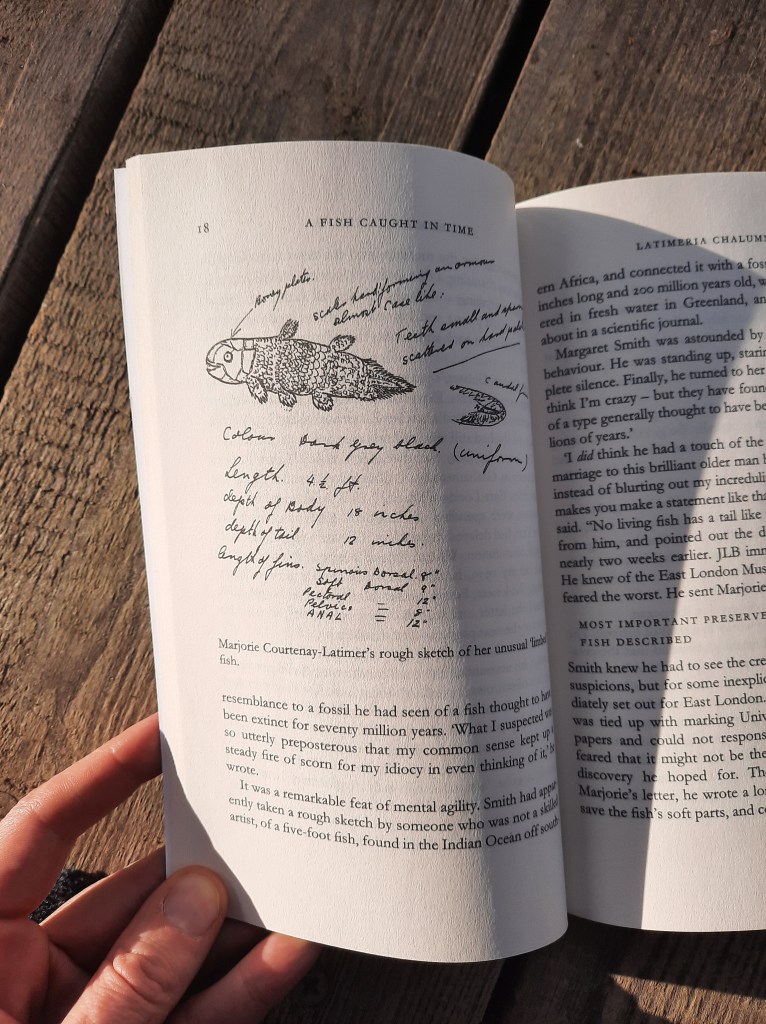 18
A FISH CAUGHT IN TIME
Boney plates.
scales hard forming an armour
almost case like.
Teeth small and
scattered on hard
Caudal
Colour Dark grey black. (uniform)
Length. 4½ ft.
depth of Body 18 inches
depth of tail 12 inches.
Length of fins. Spinous Dorsal 8"
Soft Dorsal 9"
Pectoral = 12"
Pelvics = 8"
ANAL = 12"
Marjorie Courtenay-Latimer's rough sketch of her unusual 'limbed
fish.
resemblance to a fossil he had seen of a fish thought to have
been extinct for seventy million years. 'What I suspected was
so utterly preposterous that my common sense kept up a
steady fire of scorn for my idiocy in even thinking of it,' he
wrote.
It was a remarkable feat of mental agility. Smith had appar-
ently taken a rough sketch by someone who was not a skilled
artist, of a five-foot fish, found in the Indian Ocean off south-
LATIMERIA CHALUMN
ern Africa, and connected it with a foss
inches long and 200 million years old, w
ered in fresh water in Greenland, an
about in a scientific journal.
Margaret Smith was astounded by
behaviour. He was standing up, stari
plete silence. Finally, he turned to her
think I'm crazy – but they have foun
of a type generally thought to have be
lions of years.'
'I did think he had a touch of the
marriage to this brilliant older man h
instead of blurting out my increduli
makes you make a statement like tha
said. "No living fish has a tail like
from him, and pointed out the d
nearly two weeks earlier. JLB imm
He knew of the East London Mus
feared the worst. He sent Marjorie
MOST IMPORTANT PRESERVE
FISH DESCRIBED
Smith knew he had to see the cre
suspicions, but for some inexplic
diately set out for East London.
was tied up with marking Univ
papers and could not respons
feared that it might not be the
discovery he hoped for. Th
Marjorie's letter, he wrote a lon
save the fish's soft parts, and co